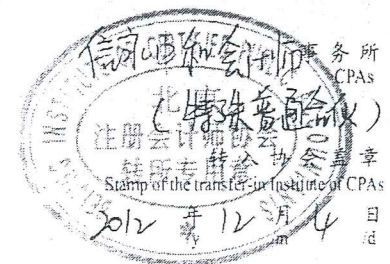 信永中和会计师事务所
CPAs
(特殊普通合伙)
北京
注册会计师协会
转所专用章
转入协会盖章
Stamp of the transfer-in Institute of CPAs
2012 年 12 月 4 日
y m /d